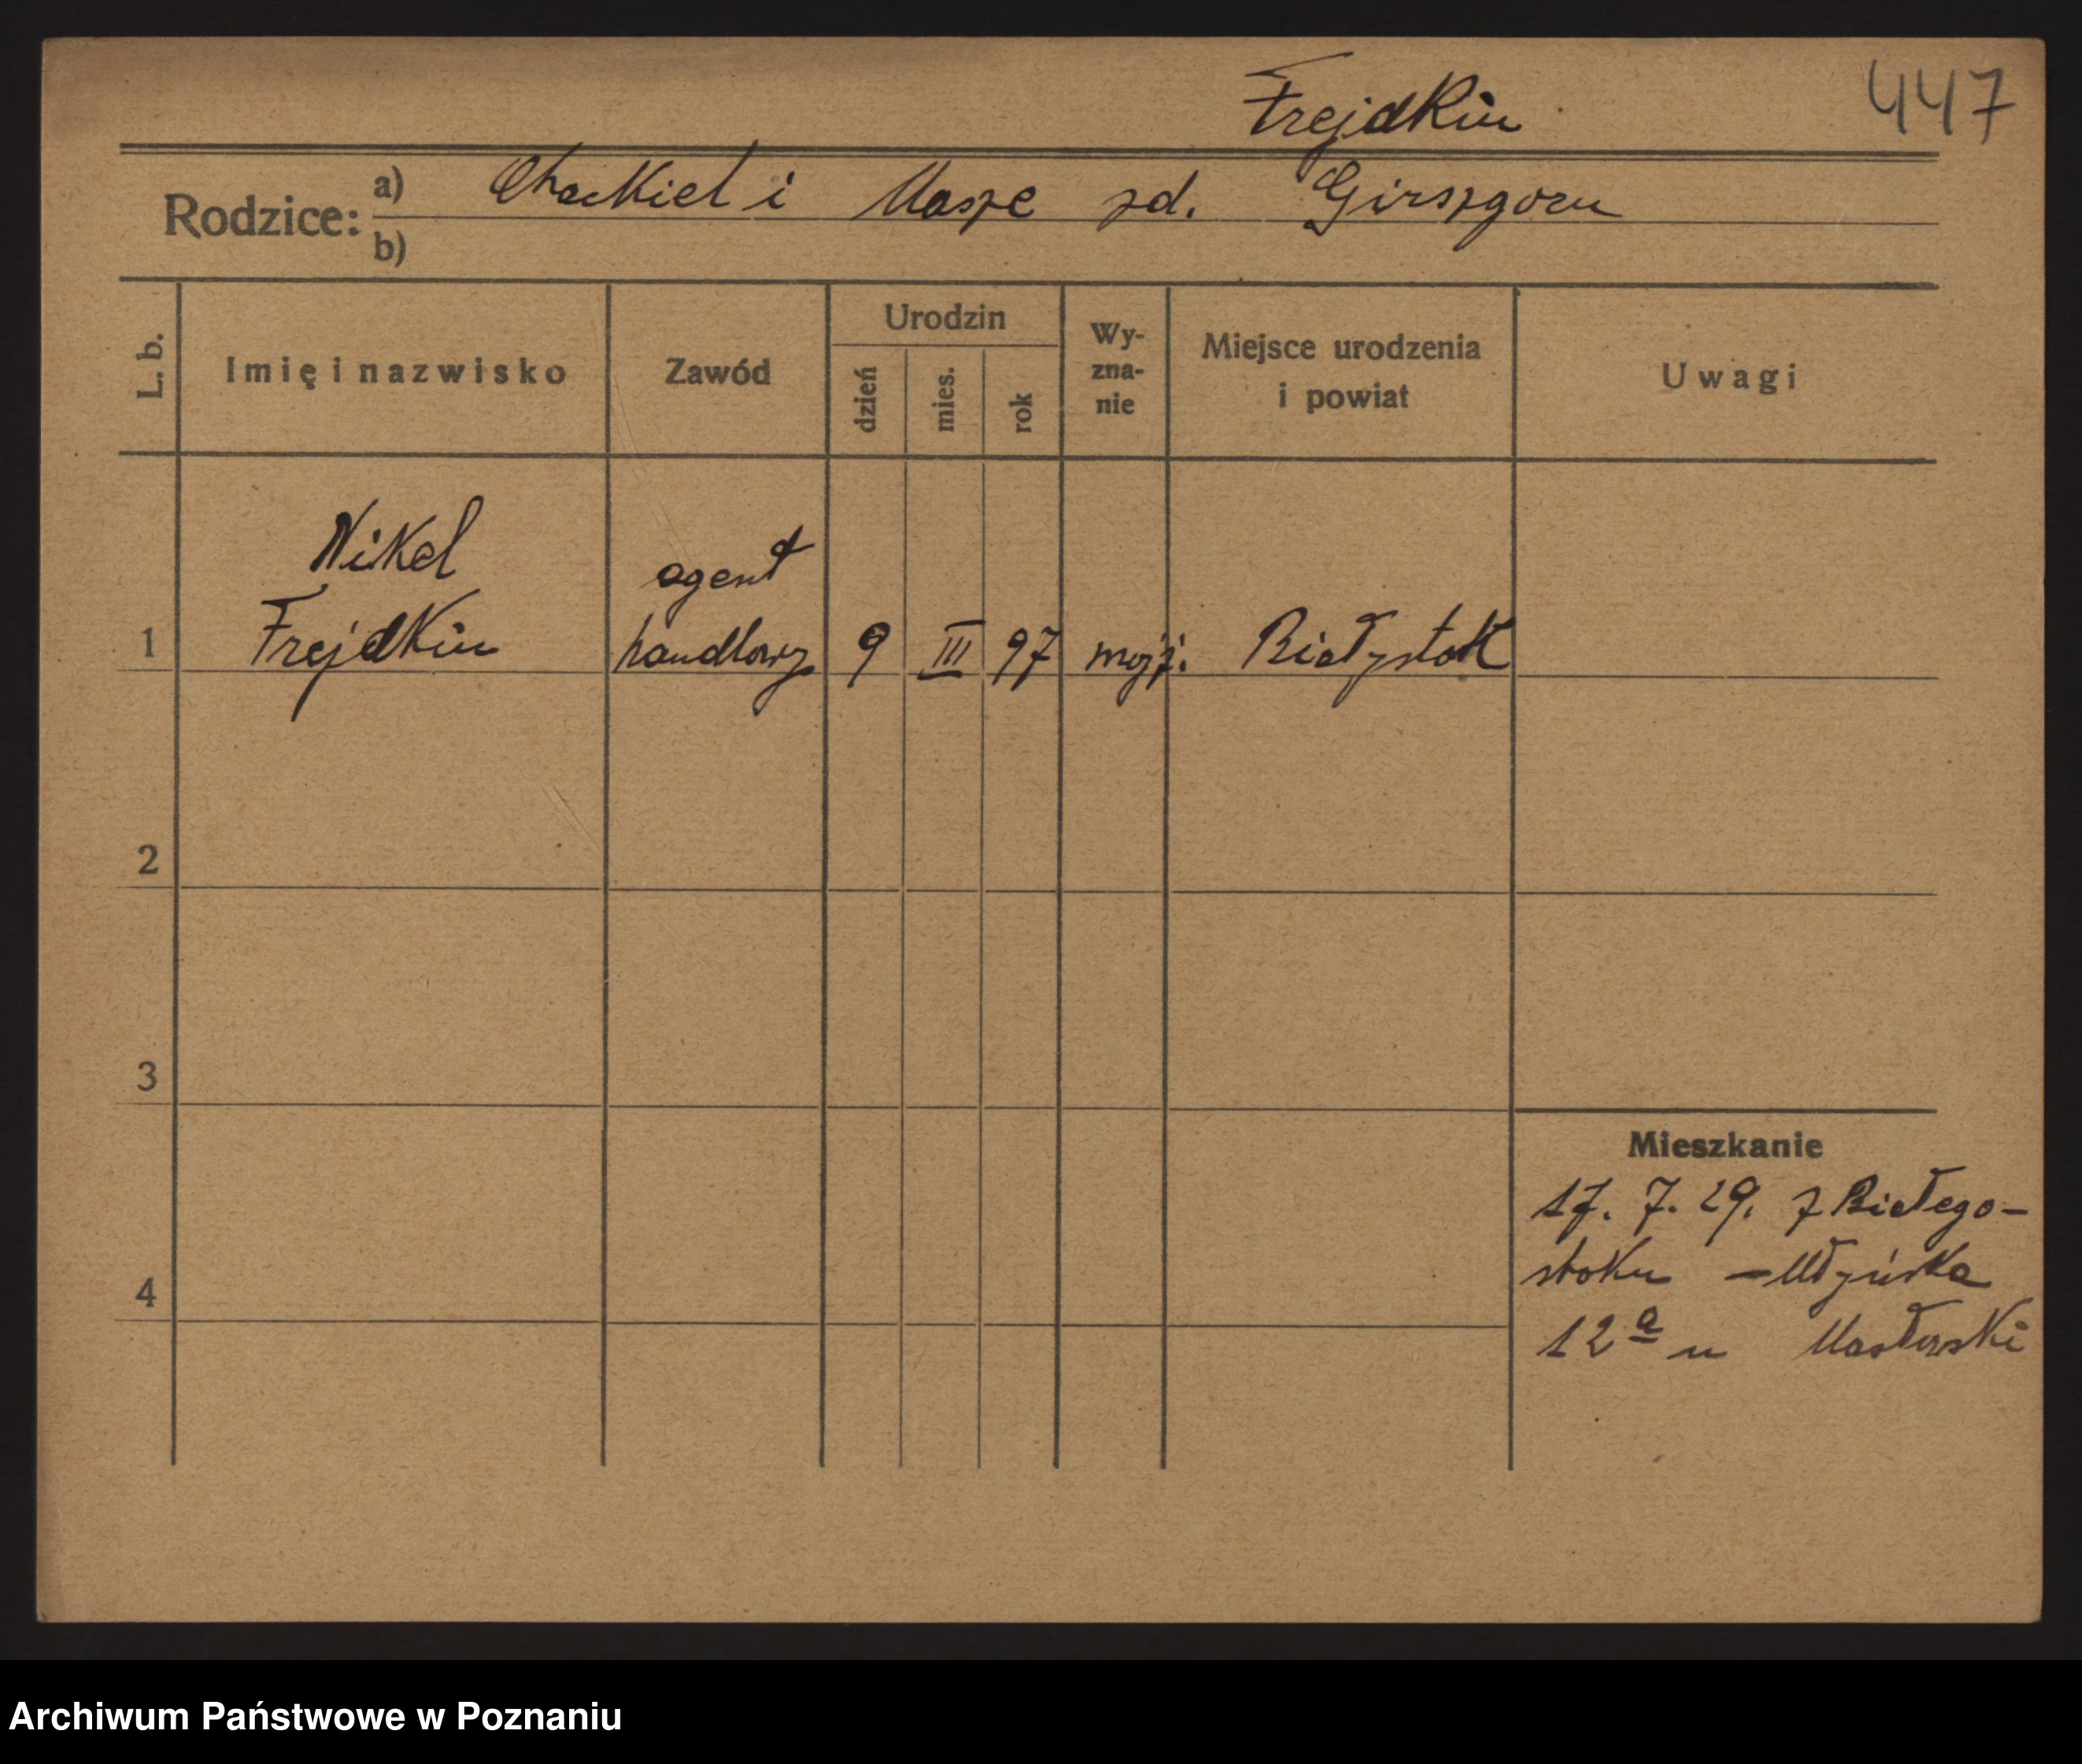 Frejdkin
447
Rodzice: a) Chackiel i Masze zd. Girszgorn
b)
L. b.
Imię i nazwisko
Zawód
Urodzin
dzień
mies.
rok
Wy-
zna-
nie
Miejsce urodzenia
i powiat
Uwagi
Nikel
agent
1 Frejdkin handlowy 9 III 97 mojż. Białystok
2
3
Mieszkanie
17. 7. 29. z Białego-
stoku – Młyńska
4
12a u
Archiwum Państwowe w Poznaniu